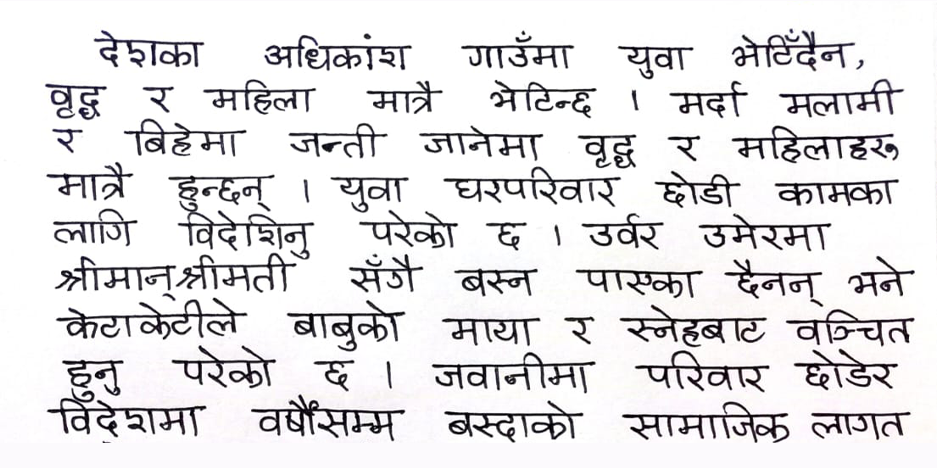 देशका अधिकांश गाउँमा युवा भेटिँदैन,
वृद्ध र महिला मात्रै भेटिन्छ । मर्दा मलामी
र बिहेमा जन्ती जानेमा वृद्ध र महिलाहरू
मात्रै हुन्छन् । युवा घरपरिवार छोडी कामका
लागि विदेशिनु परेको छ । उर्वर उमेरमा
श्रीमान्श्रीमती सँगै बस्न पाएका छैनन् भने
केटाकेटीले बाबुको माया र स्नेहबाट वञ्चित
हुनु परेको छ । जवानीमा परिवार छोडेर
विदेशमा वर्षौंसम्म बस्दाको सामाजिक लागत